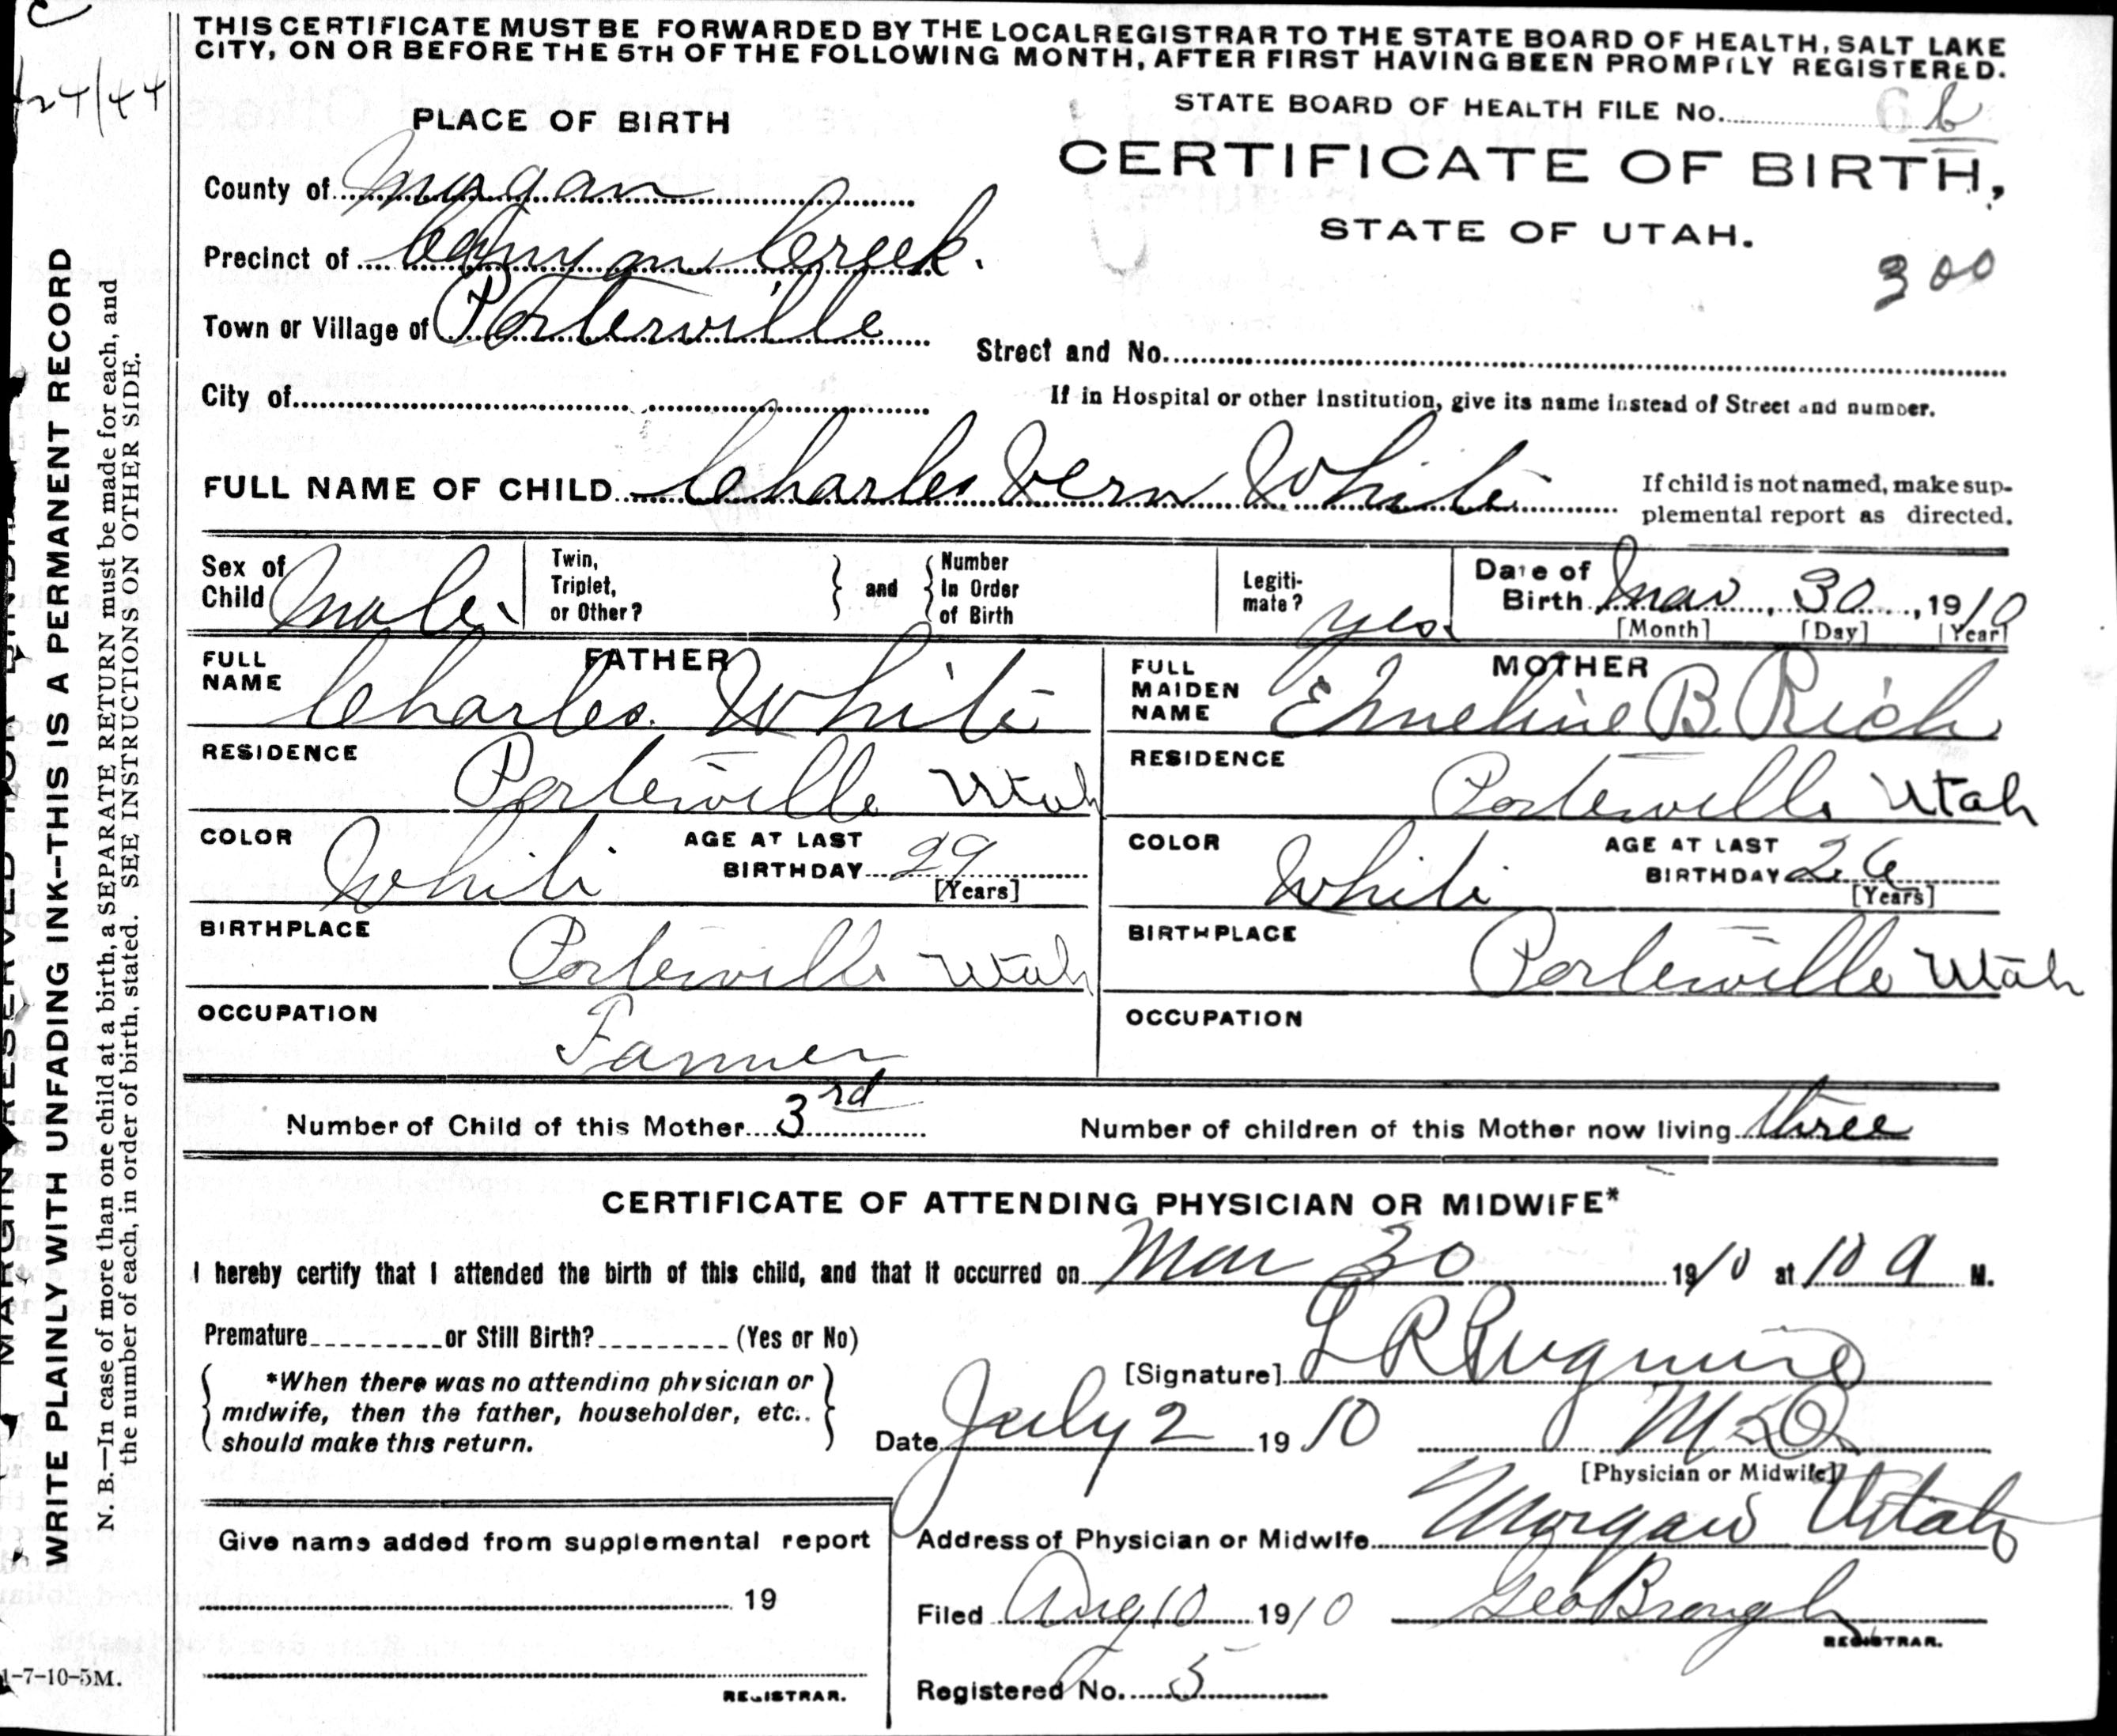 C
24/44
THIS CERTIFICATE MUST BE FORWARDED BY THE LOCAL REGISTRAR TO THE STATE BOARD OF HEALTH, SALT LAKE
CITY, ON OR BEFORE THE 5TH OF THE FOLLOWING MONTH, AFTER FIRST HAVING BEEN PROMPTLY REGISTERED.
STATE BOARD OF HEALTH FILE No. 6
PLACE OF BIRTH
CERTIFICATE OF BIRTH,
STATE OF UTAH.
300
County of Morgan
Precinct of Canyon Creek.
Town or Village of Porterville
Street and No.
City of
If in Hospital or other Institution, give its name instead of Street and number.
FULL NAME OF CHILD Charles Vern White
If child is not named, make sup-
plemental report as directed.
Sex of Child Male
Twin, Triplet, or Other? } and { Number In Order of Birth
Legiti-
mate? yes.
Date of Birth Mar 30, 1910
[Month] [Day] [Year]
FATHER
FULL NAME Charles White
RESIDENCE Porterville Utah
COLOR White AGE AT LAST BIRTHDAY 29 [Years]
BIRTHPLACE Porterville Utah
OCCUPATION Farmer
MOTHER
FULL MAIDEN NAME Emeline B. Rich
RESIDENCE Porterville Utah
COLOR White AGE AT LAST BIRTHDAY 26 [Years]
BIRTHPLACE Porterville Utah
OCCUPATION
Number of Child of this Mother 3rd Number of children of this Mother now living three
CERTIFICATE OF ATTENDING PHYSICIAN OR MIDWIFE*
I hereby certify that I attended the birth of this child, and that it occurred on Mar 30 1910 at 10 a M.
Premature or Still Birth? (Yes or No)
*When there was no attending physician or
midwife, then the father, householder, etc.,
should make this return.
[Signature] L R Pugmire
Date July 2 1910 M D
[Physician or Midwife]
Address of Physician or Midwife Morgan Utah
Filed Aug 10 1910 Geo Brough
REGISTRAR.
Registered No. 5
Give name added from supplemental report
19
REGISTRAR.
MARGIN RESERVED FOR BINDING
WRITE PLAINLY WITH UNFADING INK--THIS IS A PERMANENT RECORD
N. B.—In case of more than one child at a birth, a SEPARATE RETURN must be made for each, and
the number of each, in order of birth, stated. SEE INSTRUCTIONS ON OTHER SIDE.
1-7-10-5M.